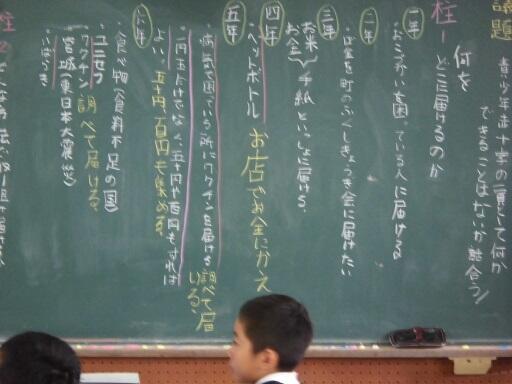 議題
青少年赤十字の一員として何か
できることはないか話合う
柱1
何を
どこに届けるのか
一年
おこづかいを困っている人に届ける
二年
はなを町のふくしきょうぎ会に届けたい
三年
お米
お金
手紙といっしょに届ける。
四年
ペットボトル
お店でお金にかえ
五年
病気で困っている所にワクチンを届ける
調べて届
いる、
一円玉だけでなく、五十円や百円もすれば
よい。
五十円、百円も集める。
六年
・食べ物(食料不足の国)
・ユニセフ
ワクチン
調べて届ける。
・宮城(東日本大震災)
・いばらき